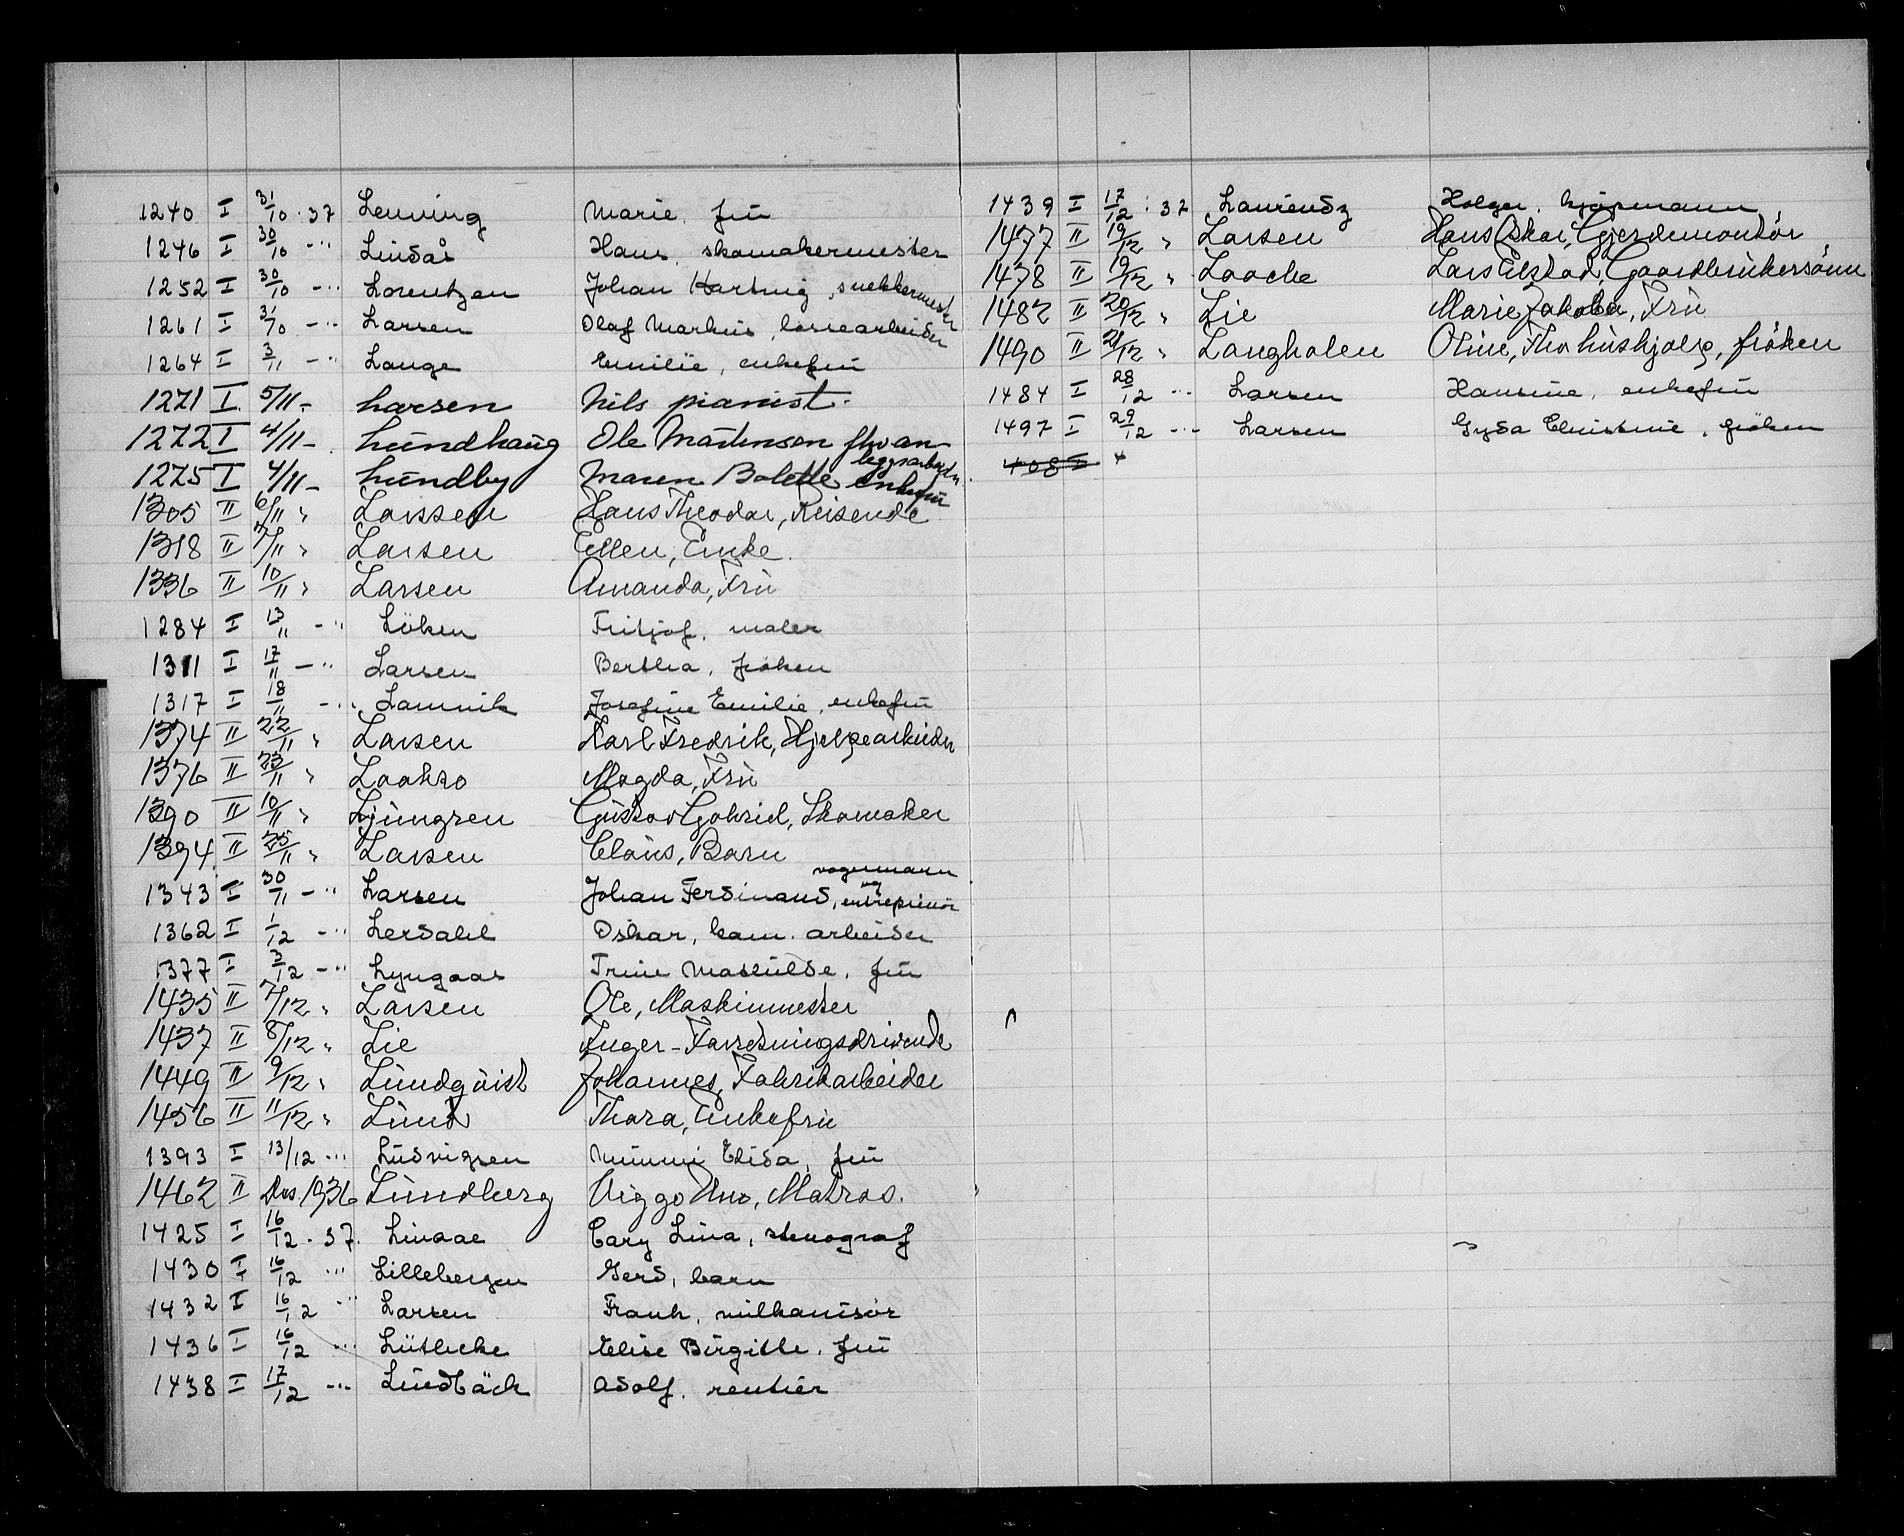 1240 I 31/10 · 37 Lenving Marie, frú
1246 I 30/10 - " Lindås Hans, skomakermester
1252 I 30/10 - " Lorentzen Johan Hartvig, snekkermester
1261 I 31/10 - " Larsen Olaf Markus, lossearbeider
1264 I 3/11 - " Lange Emilie, enkefrú
1271 I 5/11 - Larsen Nils pianist.
1272 I 4/11 - Lúndhaúg Ole Martinsen fhv anleggsarbeider
1275 I 4/11 - Lúndby Maren Bolette enkefrú
1305 II 6/11 " Larssen Hans Theodor, Reisende
1318 II 7/11 " Larsen Ellen, Enke.
1336 II 10/11 " Larsen Amanda, Frú
1284 I 13/11 - " Löken Fritjof, maler
1311 I 17/11 - " Larsen Bertha, fröken
1317 I 18/11 - " Lamvik Josefine Emilie, enkefrú
1374 II 22/11 " Larsen Karl Fredrik, Hjelpearbeider
1376 II 23/11 " Laakso Magda, Frú
1390 II 10/11 " Ljúngren Gústav Gabriel, Skomaker
1394 II 25/11 " Larsen Claús, Barn
1343 I 30/11 - " Larsen Johan Ferdinand, vognmann og entreprenör
1362 I 1/12 - " Lersahl Oskar, kom. arbeider
1377 I 3/12 - " Lyngaas Trine Mathilde, frú
1435 II 7/12 " Larsen Ole, Maskinmester
1437 II 8/12 " Lie Inger - Forretningsdrivende
1449 II 9/12 " Lúndqvist Johannes, Fabrikarbeider
1456 II 11/12 " Lúnd Thora, Enkefrú
1393 I 13/12 - " Lúdvigsen Mimmi Elida, frú
1462 II Des. 1936 Lúndberg Viggo Uno, Matros.
1425 I 16/12 · 37. Linaae Cary Lina, stenograf
1430 I 16/12 " Lillebergen Gerd, barn
1432 I 16/12 " Larsen Frank, milkantisör
1436 I 16/12 " Lütheke Elise Birgitte, frú
1438 I 17/12 - " Lindbäck Adolf, rentier
1439 I 17/12 · 37 Laurendz Holger, kjöpmann
1477 II 19/12 " Larsen Hans Oskar, Gjerdemontör
1478 II 19/12 " Laache Lars Elstad, Gaardbrúkersönn
1482 II 20/12 " Lie Marie Jakoba, Frú
1490 II 21/12 " Langholen Oline, Fhv húshjelp, fröken
1484 I 28/12 - " Larsen Hansine, enkefrú
1497 I 29/12 - " Larsen Gyda Christine, fröken
408 I